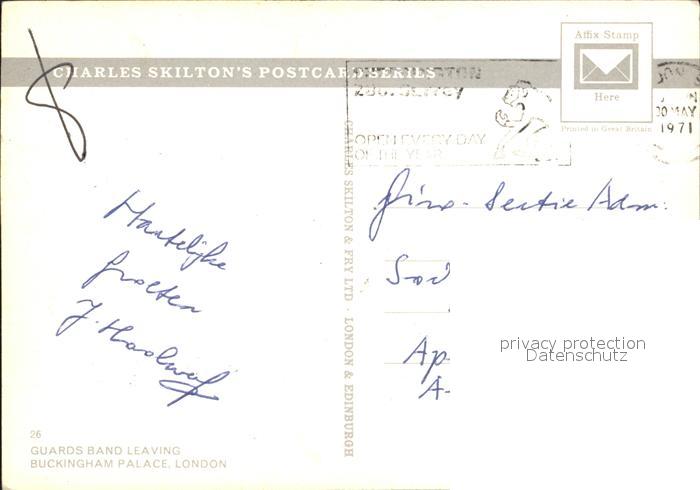 CHARLES SKILTON'S POSTCARD SERIES
Affix Stamp
Here
Printed in Great Britain
ZOO. Surrey
OPEN EVERY DAY
OF THE YEAR
30 MAY
1971
CHARLES SKILTON & FRY LTD · LONDON & EDINBURGH
Hartelijke
groeten
J.
Giro - Sectie Adm.
Ap
A-
privacy protection
Datenschutz
26
GUARDS BAND LEAVING
BUCKINGHAM PALACE, LONDON